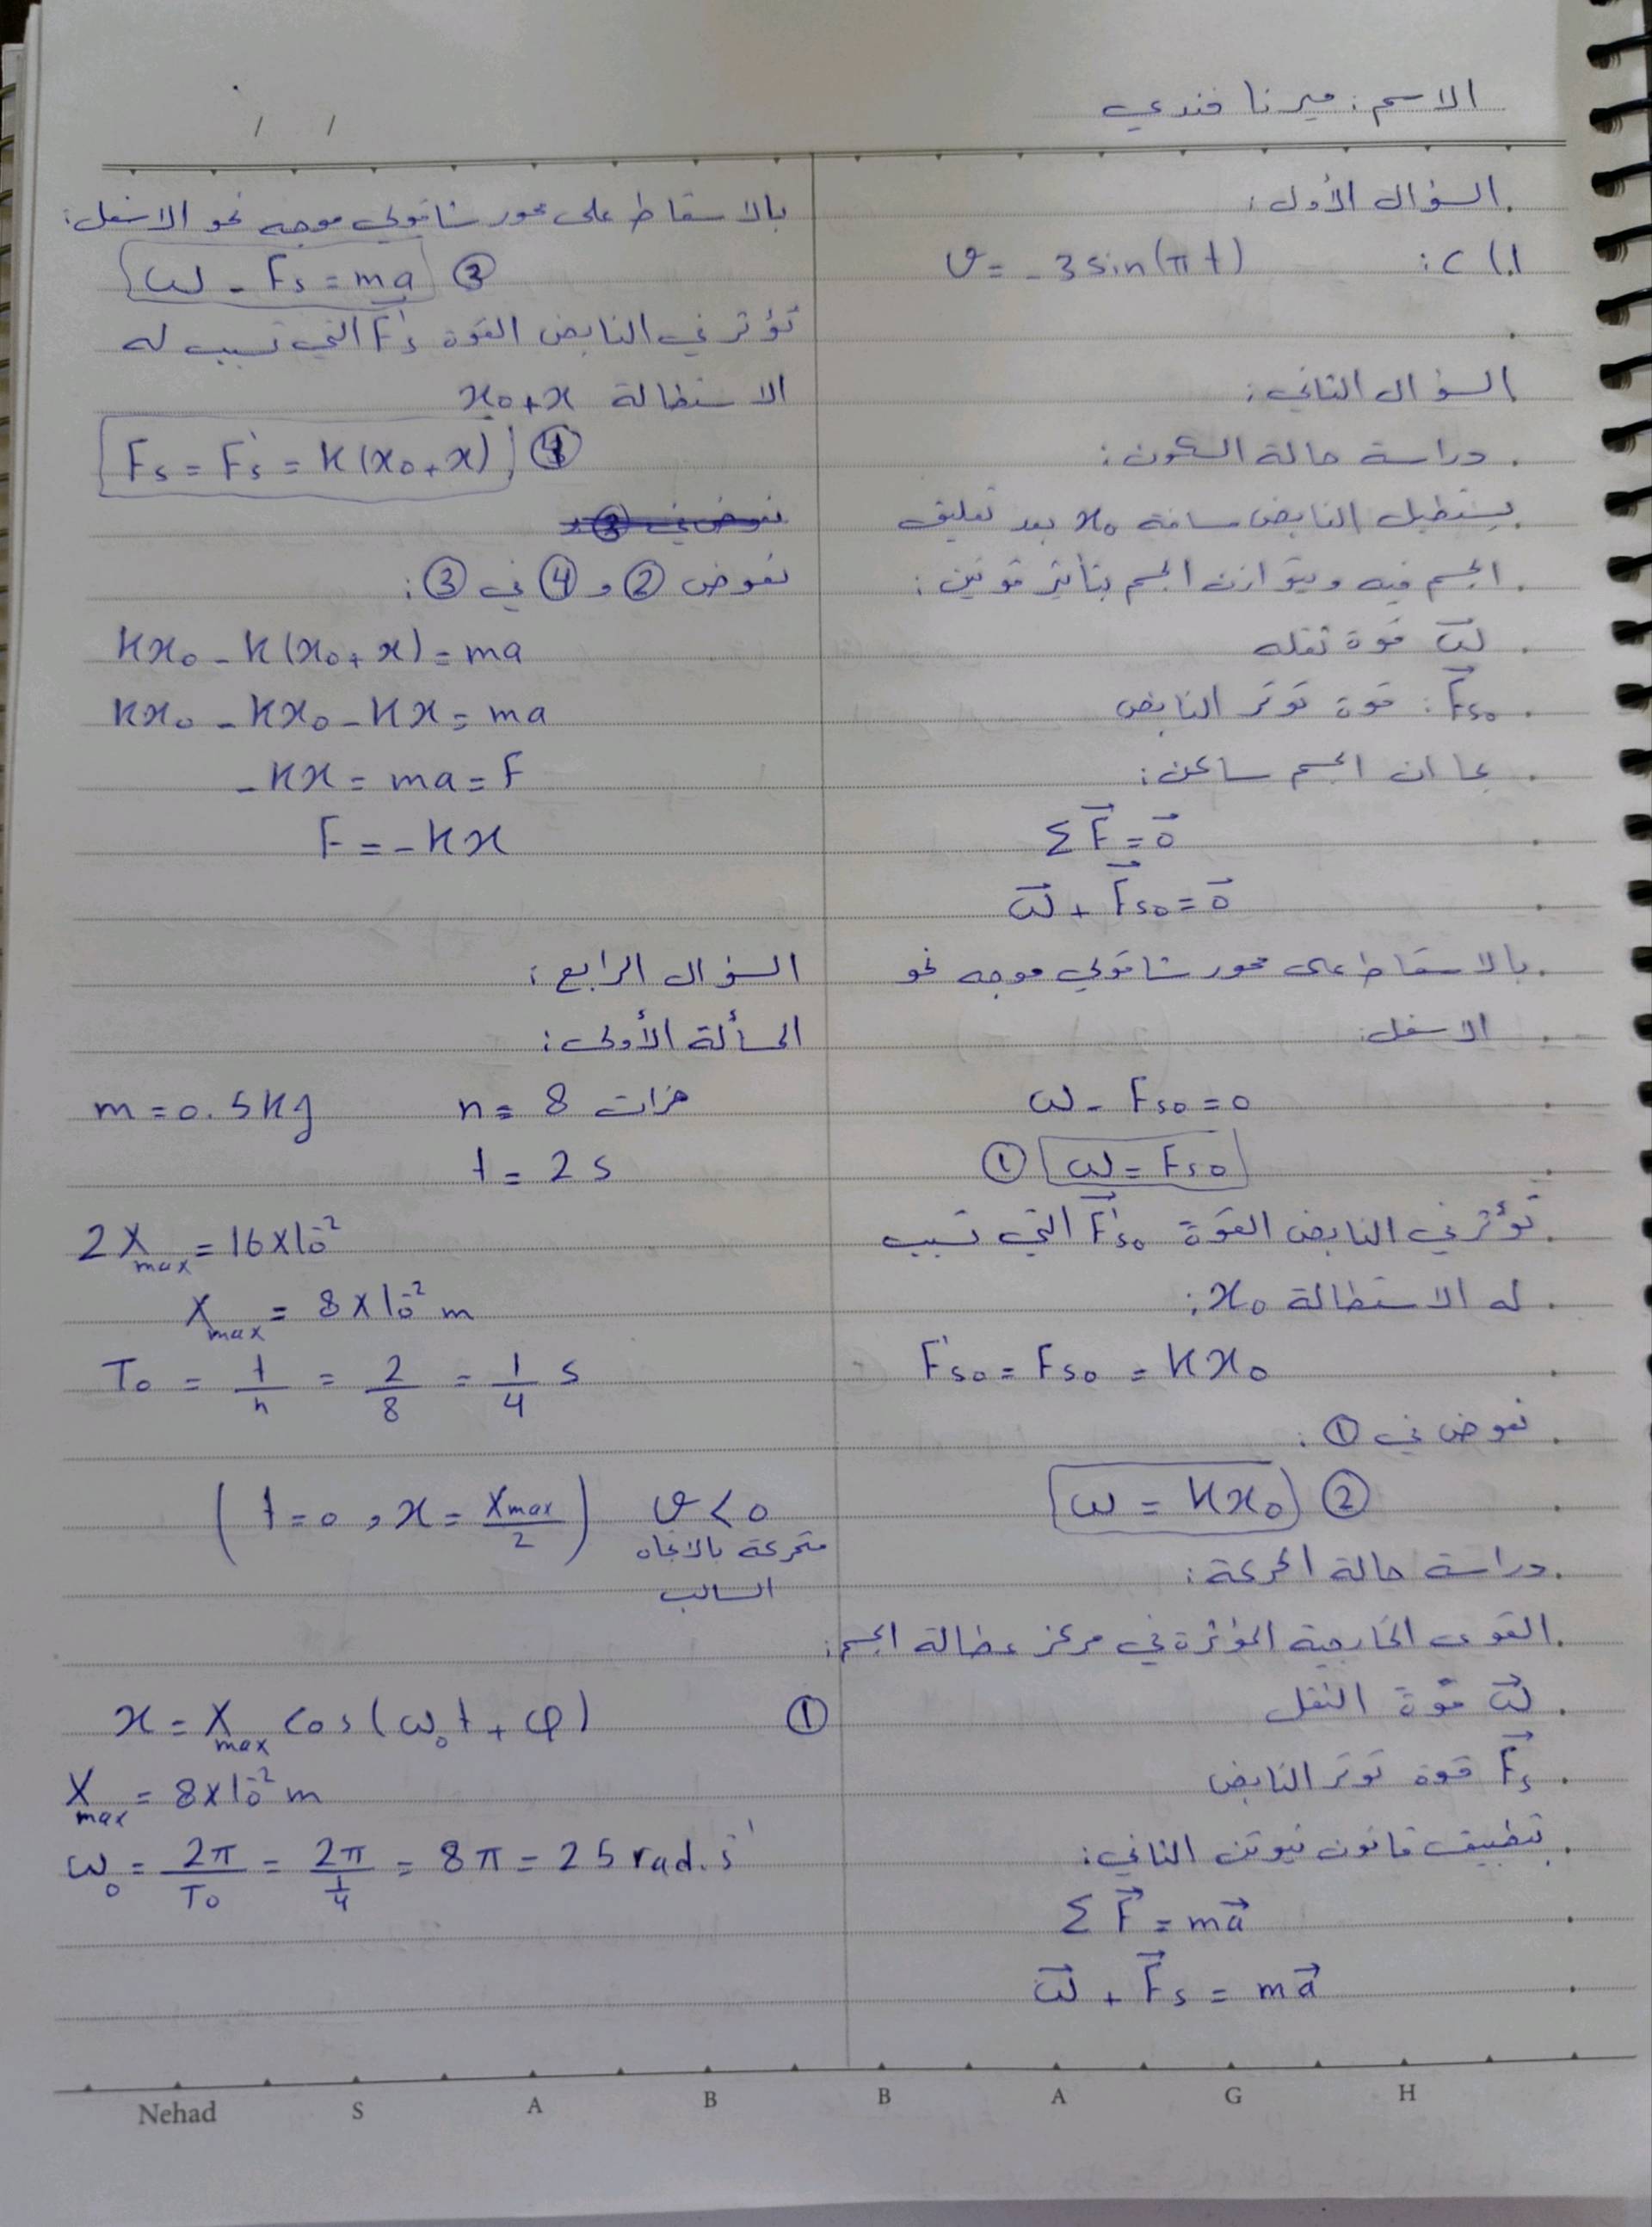 الاسم: ميرنا فندي
/ /
السؤال الأول:
1) c: v = -3 sin(πt)
السؤال الثاني:
دراسة حالة السكون:
يستطيل النابض مسافة x₀ بعد تعليق
الجسم فيه ويتوازن الجسم بتأثير قوتين:
ω⃗ قوة ثقله
F⃗s₀: قوة توتر النابض
بما ان الجسم ساكن:
Σ F⃗ = 0⃗
ω⃗ + F⃗s₀ = 0⃗
بالاسقاط على محور شاقولي موجه نحو
الاسفل:
ω - Fs₀ = 0
① ω = Fs₀
تؤثر في النابض القوة F⃗'s₀ التي تسبب
له الاستطالة x₀:
F's₀ = Fs₀ = kx₀
نعوض في ①:
ω = kx₀ ②
دراسة حالة الحركة:
القوى الخارجية المؤثرة في مركز عطالة الجسم:
ω⃗ قوة الثقل
F⃗s قوة توتر النابض
بتطبيق قانون نيوتن الثاني:
Σ F⃗ = ma⃗
ω⃗ + F⃗s = ma⃗
بالاسقاط على محور شاقولي موجه نحو الاسفل:
ω - Fs = ma ③
تؤثر في النابض القوة F's التي تسبب له
الاستطالة x₀+x
Fs = F's = k(x₀+x) ④
نعوض في ③
نعوض ② و ④ في ③:
kx₀ - k(x₀+x) = ma
kx₀ - kx₀ - kx = ma
-kx = ma = F
F = -kx
السؤال الرابع:
المسألة الأولى:
m = 0.5 kg n = 8 هزات
t = 2 s
2Xmax = 16×10⁻²
Xmax = 8×10⁻² m
T₀ = t/n = 2/8 = 1/4 s
(t = 0, x = Xmax/2) v < 0
متحركة بالاتجاه
السالب
① x = Xmax cos(ω₀t + φ)
Xmax = 8×10⁻² m
ω₀ = 2π/T₀ = 2π/(1/4) = 8π = 25 rad.s⁻¹
Nehad S A B B A G H